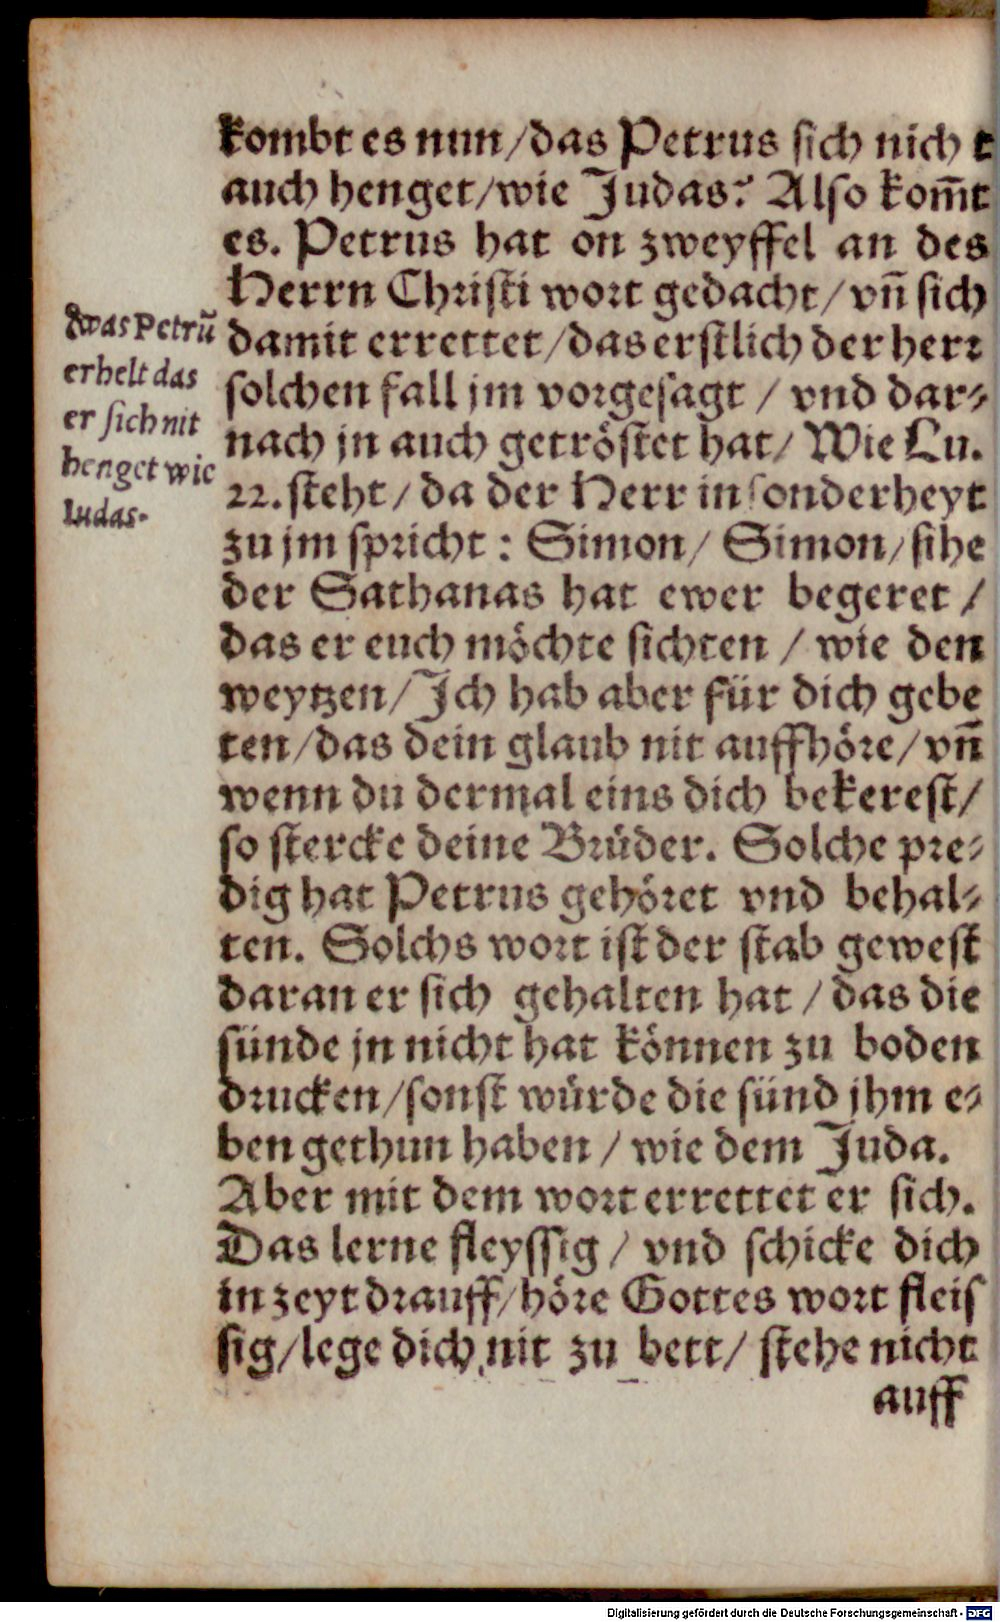 kombt es nun/das Petrus sich nicht
auch henget/wie Judas? Also kom̃t
es. Petrus hat on zweyffel an des
Herrn Christi wort gedacht/vñ sich
damit errettet/das erstlich der herr
solchen fall jm vorgesagt / vnd dar⸗
nach jn auch getröstet hat/ Wie Lu.
22. steht/da der Herr in sonderheyt
zu jm spricht: Simon/ Simon/sihe
der Sathanas hat ewer begeret /
das er euch möchte sichten / wie den
weytzen/Jch hab aber für dich gebe
ten/das dein glaub nit auffhöre/vñ
wenn du dermal eins dich bekerest/
so stercke deine Brüder. Solche pre⸗
dig hat Petrus gehöret vnd behal⸗
ten. Solchs wort ist der stab gewest
daran er sich gehalten hat / das die
sünde jn nicht hat können zu boden
drucken/sonst würde die sünd jhm e⸗
ben gethun haben / wie dem Juda.
Aber mit dem wort errettet er sich.
Das lerne fleyssig / vnd schicke dich
in zeyt drauff/höre Gottes wort fleis
sig/lege dich nit zu bett/ stehe nicht
auff
was Petrũ
erhelt das
er sich nit
henget wie
Iudas.
Digitalisierung gefördert durch die Deutsche Forschungsgemeinschaft - DFG